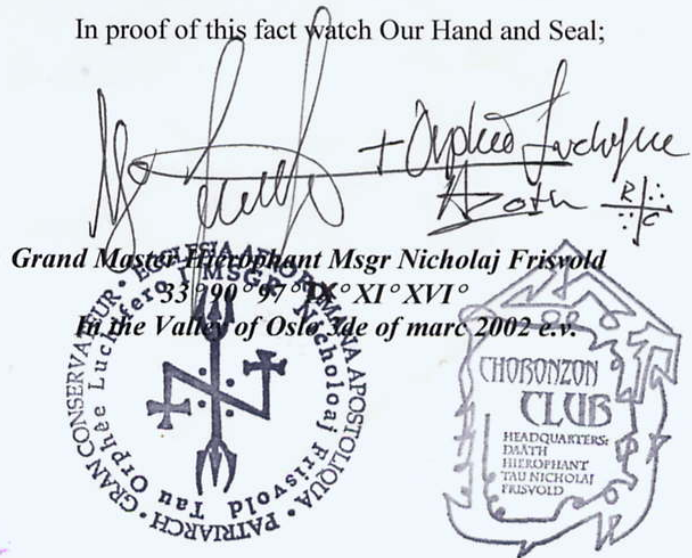 In proof of this fact watch Our Hand and Seal;
+ Orpheo Luchifero
Azoth R C
Grand Master Hierophant Msgr Nicholaj Frisvold
33° 90° 97° IX° XI° XVI°
In the Valley of Oslo 3de of marc 2002 e.v.
GRAN CONSERVATEUR • ECCLESIA APOSTOLIQUA • PATRIARCH •
Tau Orphée Luchifero MSGR. Nicholoaj Frisvold
CHORONZON
CLUB
HEADQUARTERS:
DAATH
HIEROPHANT
TAU NICHOLAJ
FRISVOLD